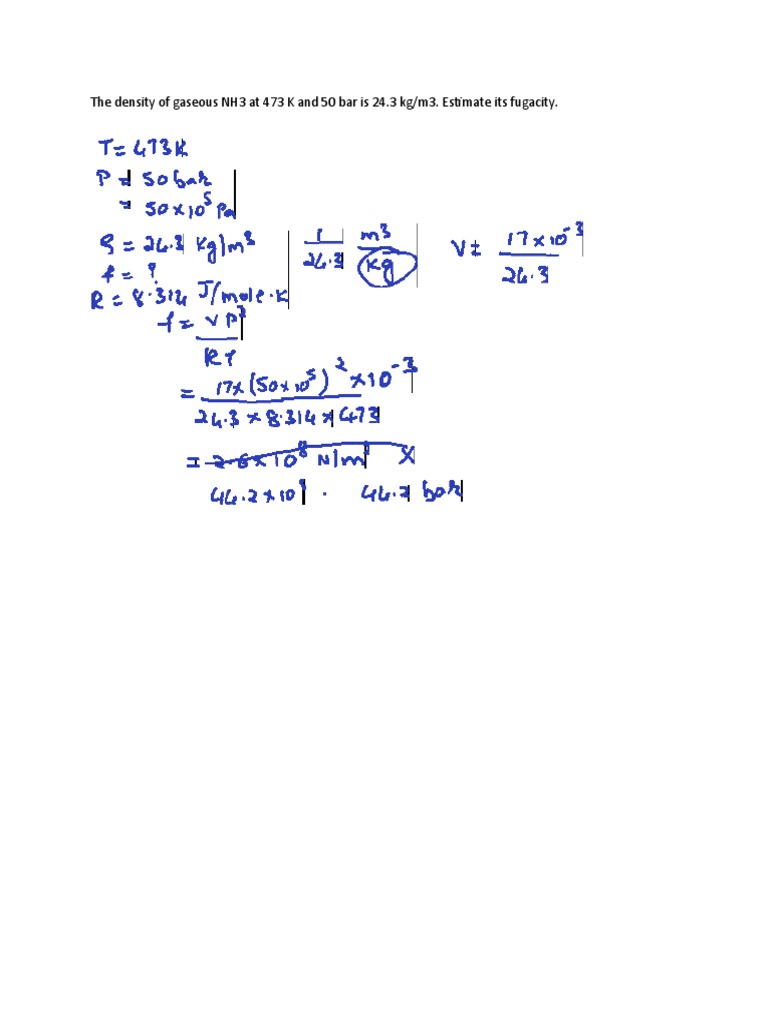 The density of gaseous NH3 at 473 K and 50 bar is 24.3 kg/m3. Estimate its fugacity.
T = 473 K
P = 50 bar
= 50 × 10⁵ Pa
ρ = 24.3 Kg/m³
1/24.3 m³/Kg
V = 17 × 10⁻³/24.3
f = ?
R = 8.314 J/mole·K
f = VP²/RT
= 17 × (50 × 10⁵)² × 10⁻³/24.3 × 8.314 × 473
= 2.6 × 10⁸ N/m² X
44.2 × 10 . 44.2 bar